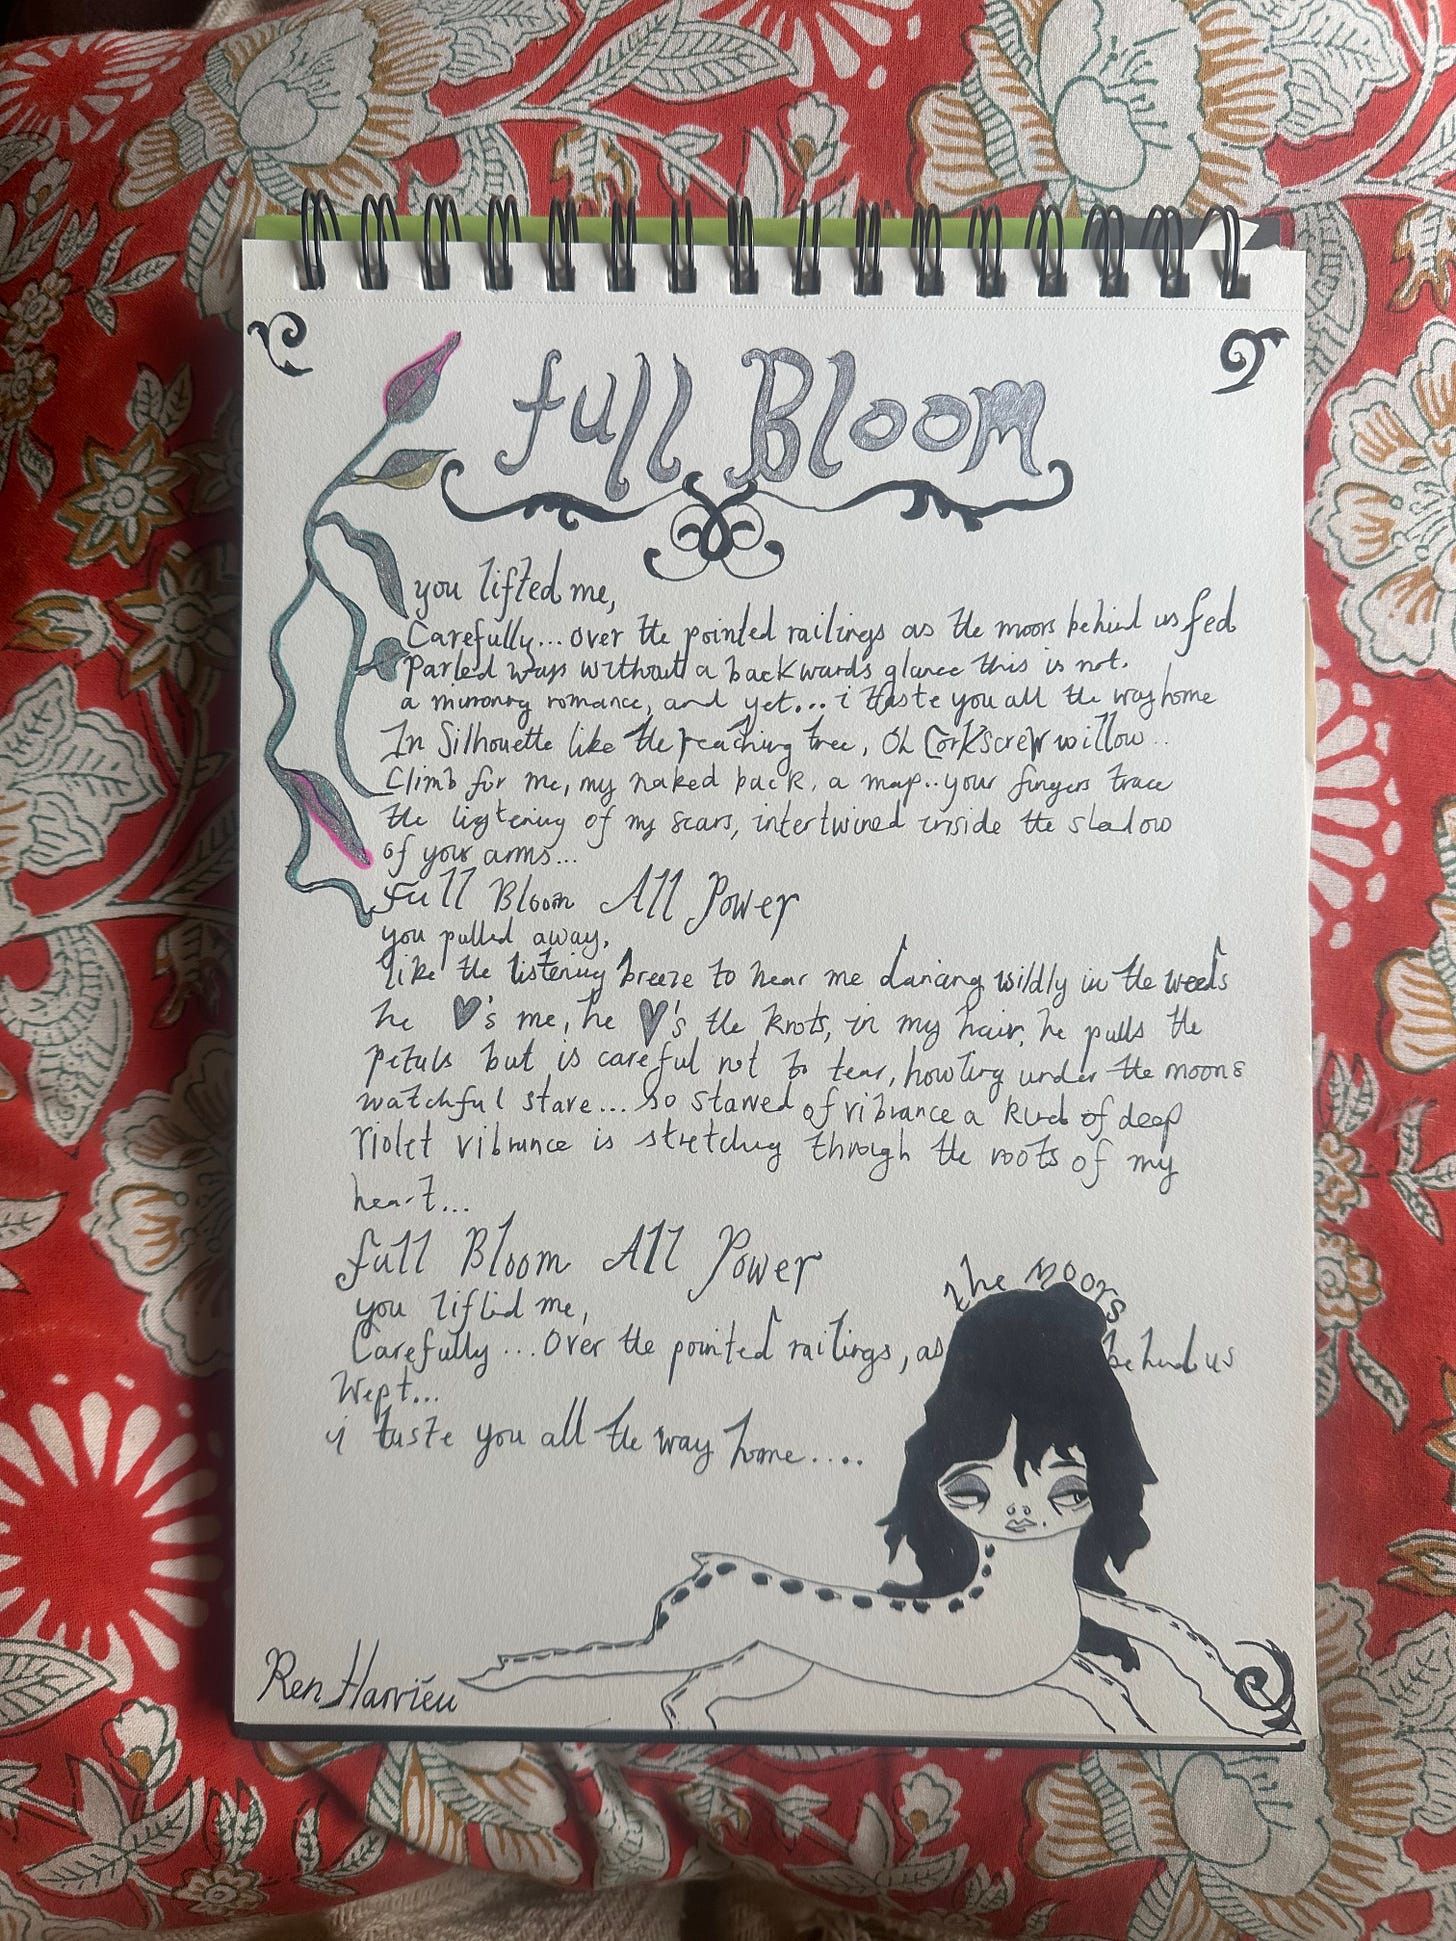 full Bloom
you lifted me,
Carefully... over the pointed railings as the moors behind us fed
Parted ways without a backwards glance this is not.
a romance, and yet... i taste you all the way home
In Silhouette like the reaching tree, Oh Corkscrew willow..
Climb for me, my naked back, a map.. your fingers trace
the of my scars, intertwined inside the shadow
of your arms...
full Bloom All Power
you pulled away,
like the listening breeze to hear me dancing wildly in the weeds
he ♥'s me, he ♥'s the knots, in my hair, he pulls the
petals but is careful not to tear, howling under the moons
watchful stare... so starved of vibrance a kind of deep
violet vibrance is stretching through the roots of my
heart...
full Bloom All Power
you lifted me,
Carefully... Over the pointed railings, as the moors behind us
Wept...
i taste you all the way home....
Ren Harvieu